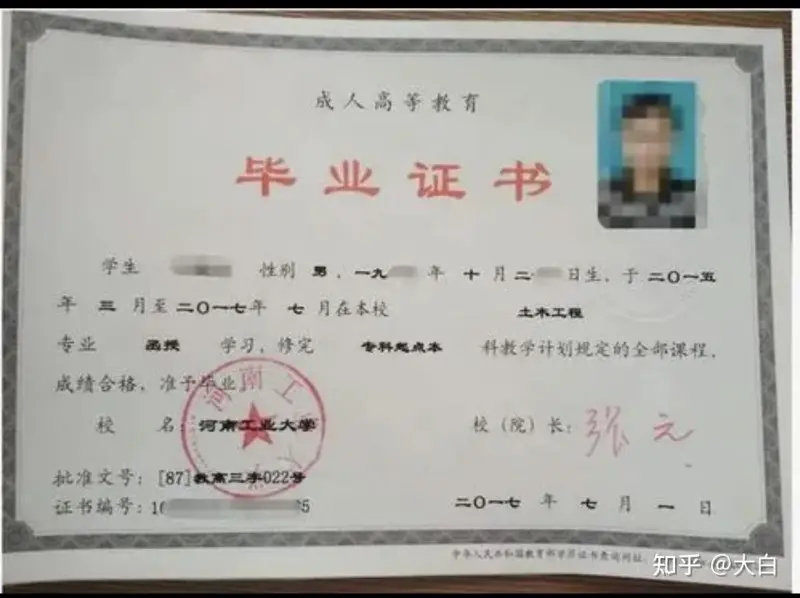 成人高等教育
毕业证书
学生 性别 男，一九 年 十 月 二 日生，于 二〇一五
年 三 月至 二〇一七年 七 月在本校 土木工程
专业 函授 学习，修完 专科起点本 科教学计划规定的全部课程，
成绩合格，准予毕业
校 名：河南工业大学 校（院）长：张元
批准文号：[87]教高三字022号
证书编号：1 5 二〇一七 年 七 月 一 日
中华人民共和国教育部学历证书查询网址
知乎 @大白